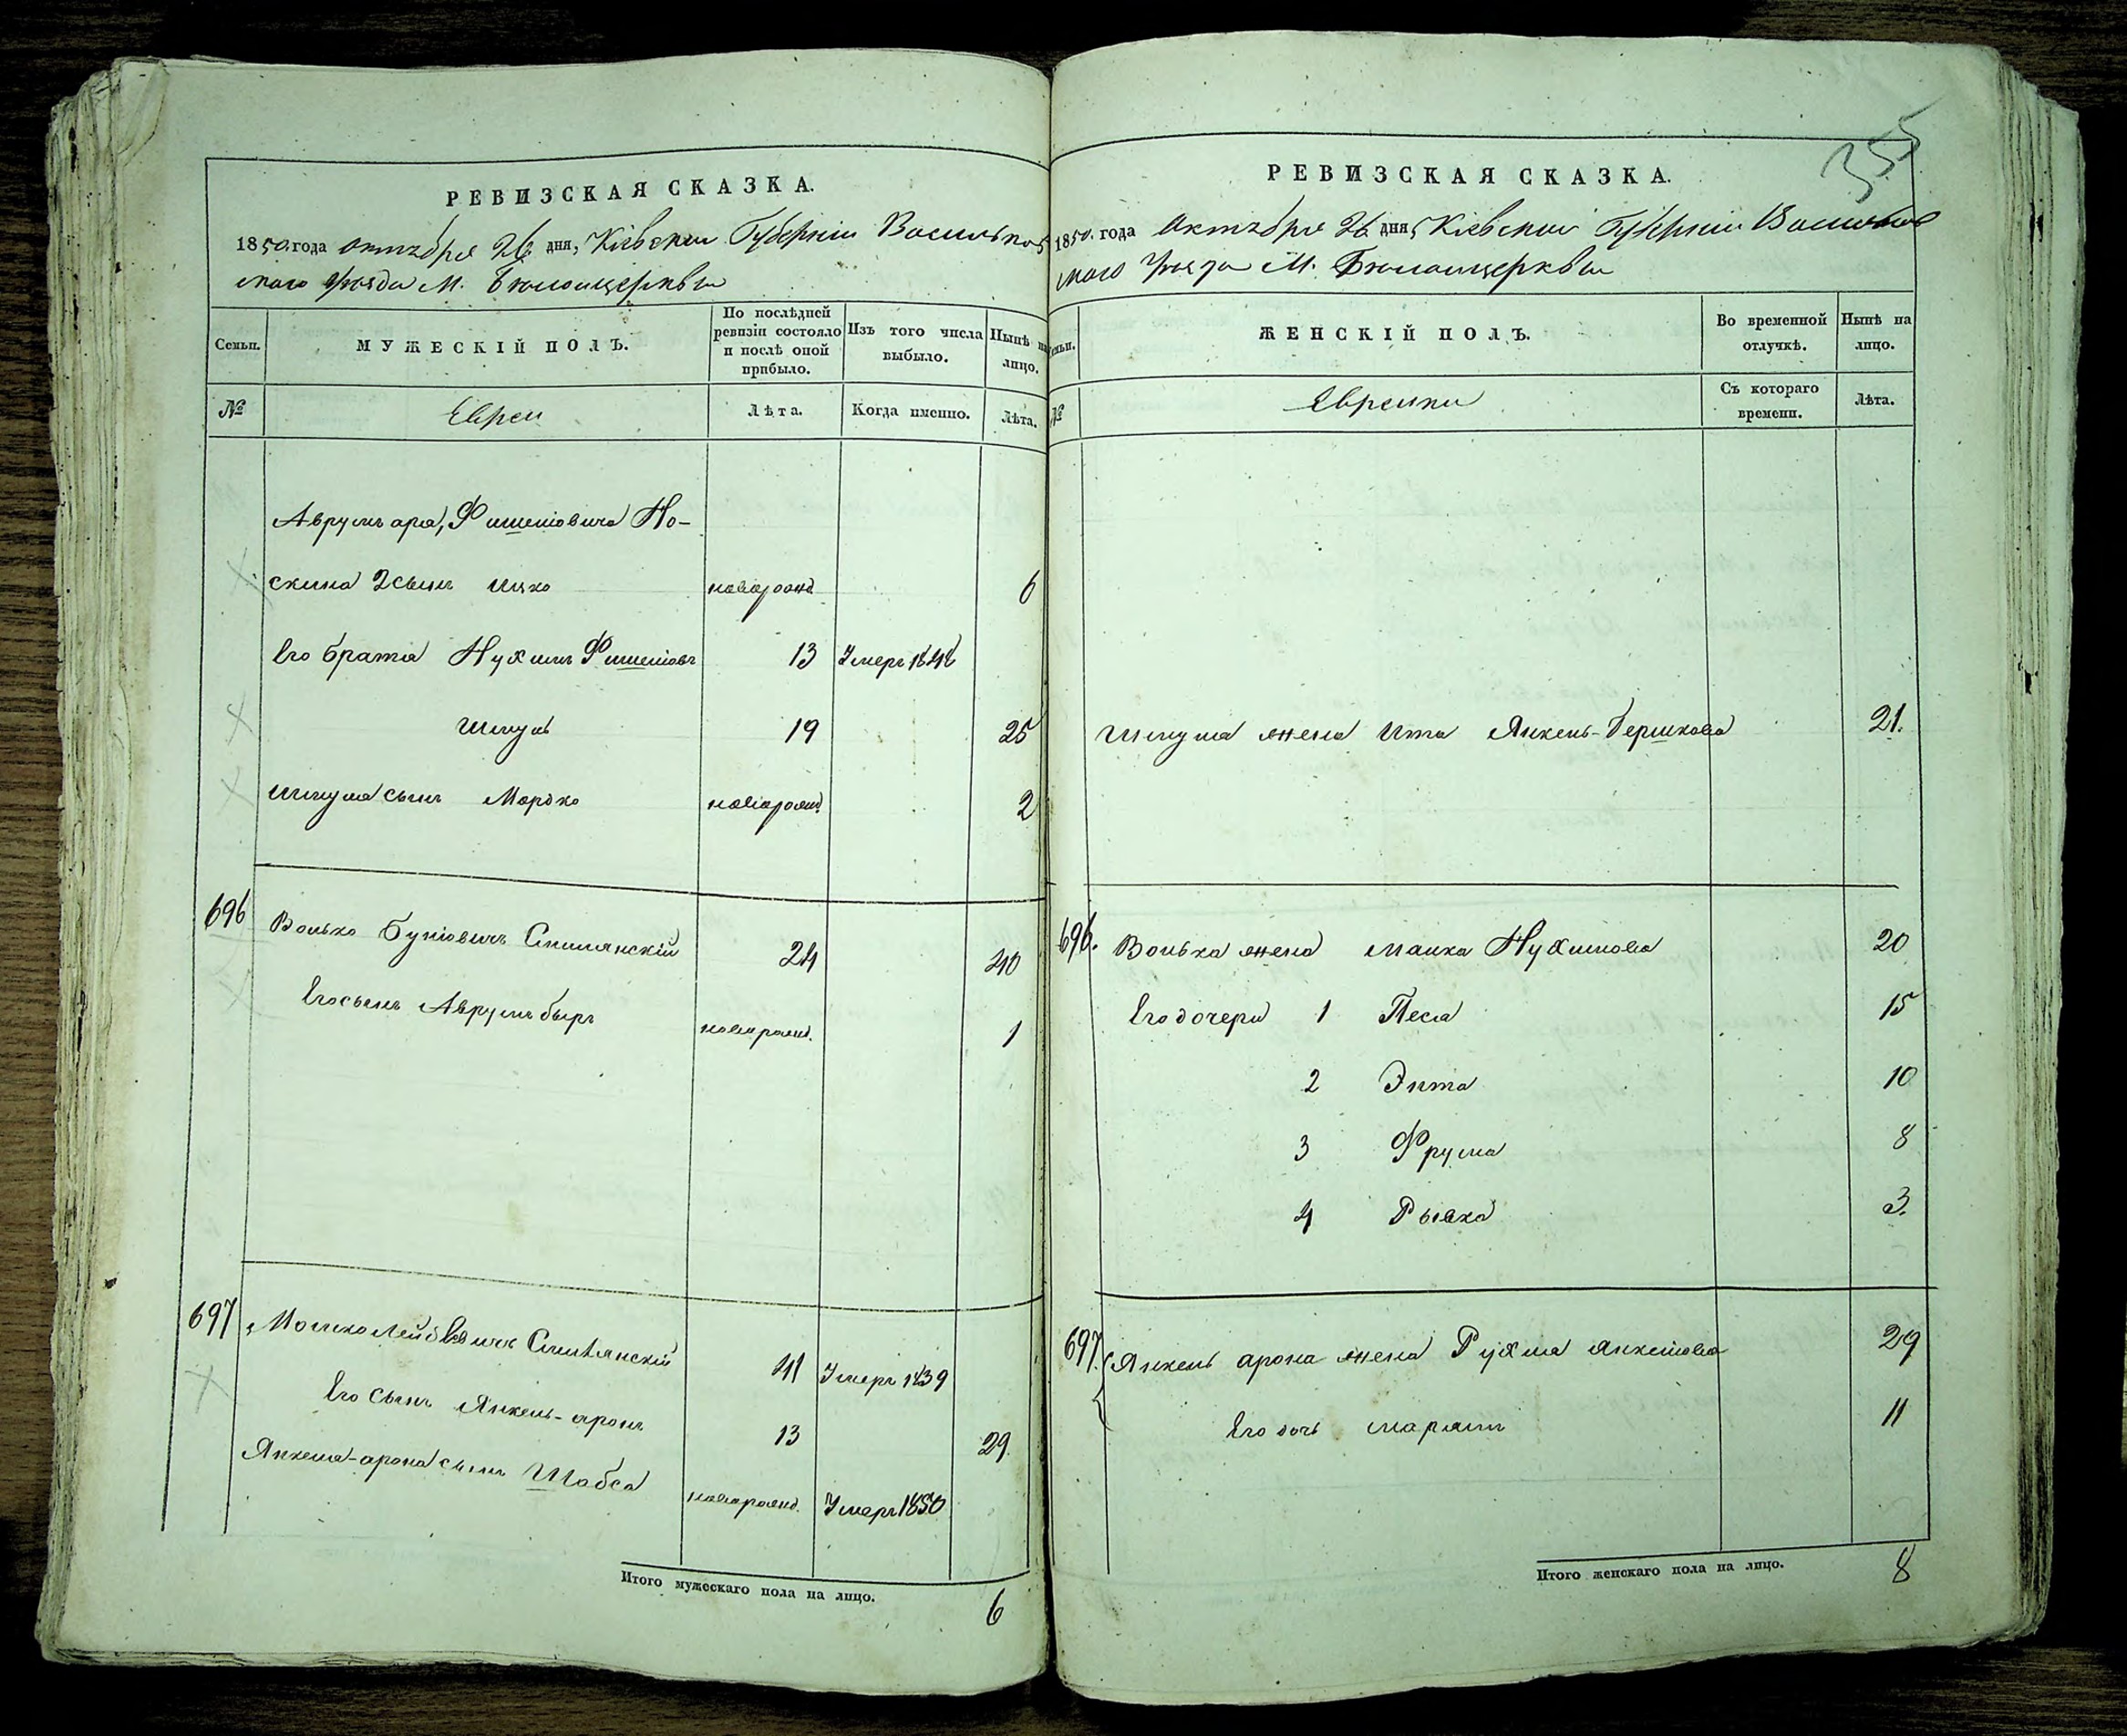 РЕВИЗСКАЯ СКАЗКА.
1850 года октября 26 дня, Кіевской Губерніи Васильков
скаго уѣзда М. Бѣлоцеркви
Семьи.
МУЖЕСКІЙ ПОЛЪ.
По послѣдней ревизіи состояло и послѣ оной прибыло.
Изъ того числа выбыло.
Нынѣ на лицо.
№
Евреи
Лѣта.
Когда именно.
Лѣта.
Аврумъ арія, Фишелiовича Но-
скина 2 сынъ Ицко новорожд 6
Его братья Нухимъ Фишелiовъ 13 Умеръ 1848
Шмуль 19 25
Шмуля сынъ Мордко новорожд. 2
696 Волько Бунiовичъ Смилянскiй 24 40
Его сынъ Аврумъ быръ новорожд. 1
697 Мошко Лейбовичъ Смилянскiй 41 Умеръ 1839
Его сынъ Янкель-аронъ 13 29.
Янкеля-арона сынъ Шабса новорожд. Умеръ 1850
Итого мужескаго пола на лицо.
6
355
РЕВИЗСКАЯ СКАЗКА.
1850. года октября 26 дня, Кіевской Губерніи Васильков
скаго уѣзда М. Бѣлоцеркви
Семьи.
ЖЕНСКІЙ ПОЛЪ.
Во временной отлучкѣ.
Нынѣ на лицо.
№
Еврейки
Съ котораго времени.
Лѣта.
Шмуля жена Ита Янкель-Бершкова 21.
696. Волька жена Малка Нухимова 20
Его дочери 1 Песя 15
2 Энта 10
3 Фрума 8
4 Рывка 3.
697. Янкель арона жена Рухля Янкелiова 29
Его дочь Маріямъ 11
Итого женскаго пола на лицо.
8